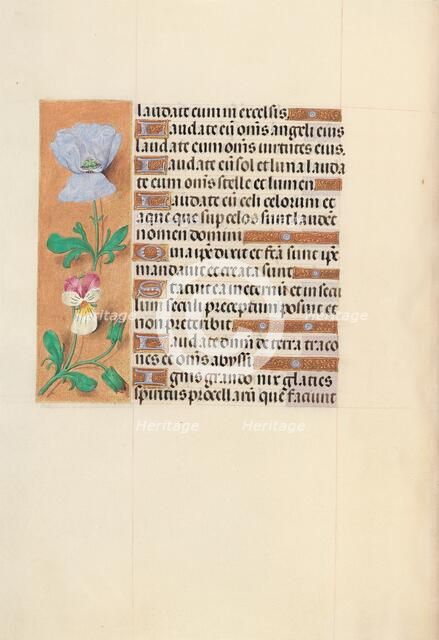 laudate eum in excelsis
Laudate eū om̄s angeli eius
laudate eum om̄s uirtutes eius.
Laudate eū sol et luna lauda
te eum om̄s stelle et lumen
Laudate eū celi celorum et
aque que sup celos sunt laudēt
nomen domini
Quia ip̄e dixit et fc̄a sunt ip̄e
mandauit et creata sunt
Statuit ea in eternū et in secu
lum seculi preceptum posuit et
non preteribit
Laudate dn̄m de terra traco
nes et om̄s abyssi
Ignis grando nix glacies
spiritus procellarū que faciunt
Heritage
Heritage
Heritage
Heritage
Heritage
Heritage